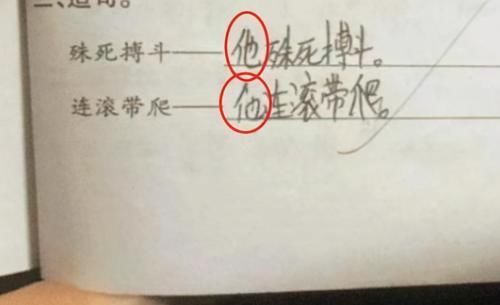 二、造句。
殊死搏斗——他殊死搏斗。
连滚带爬——他连滚带爬。